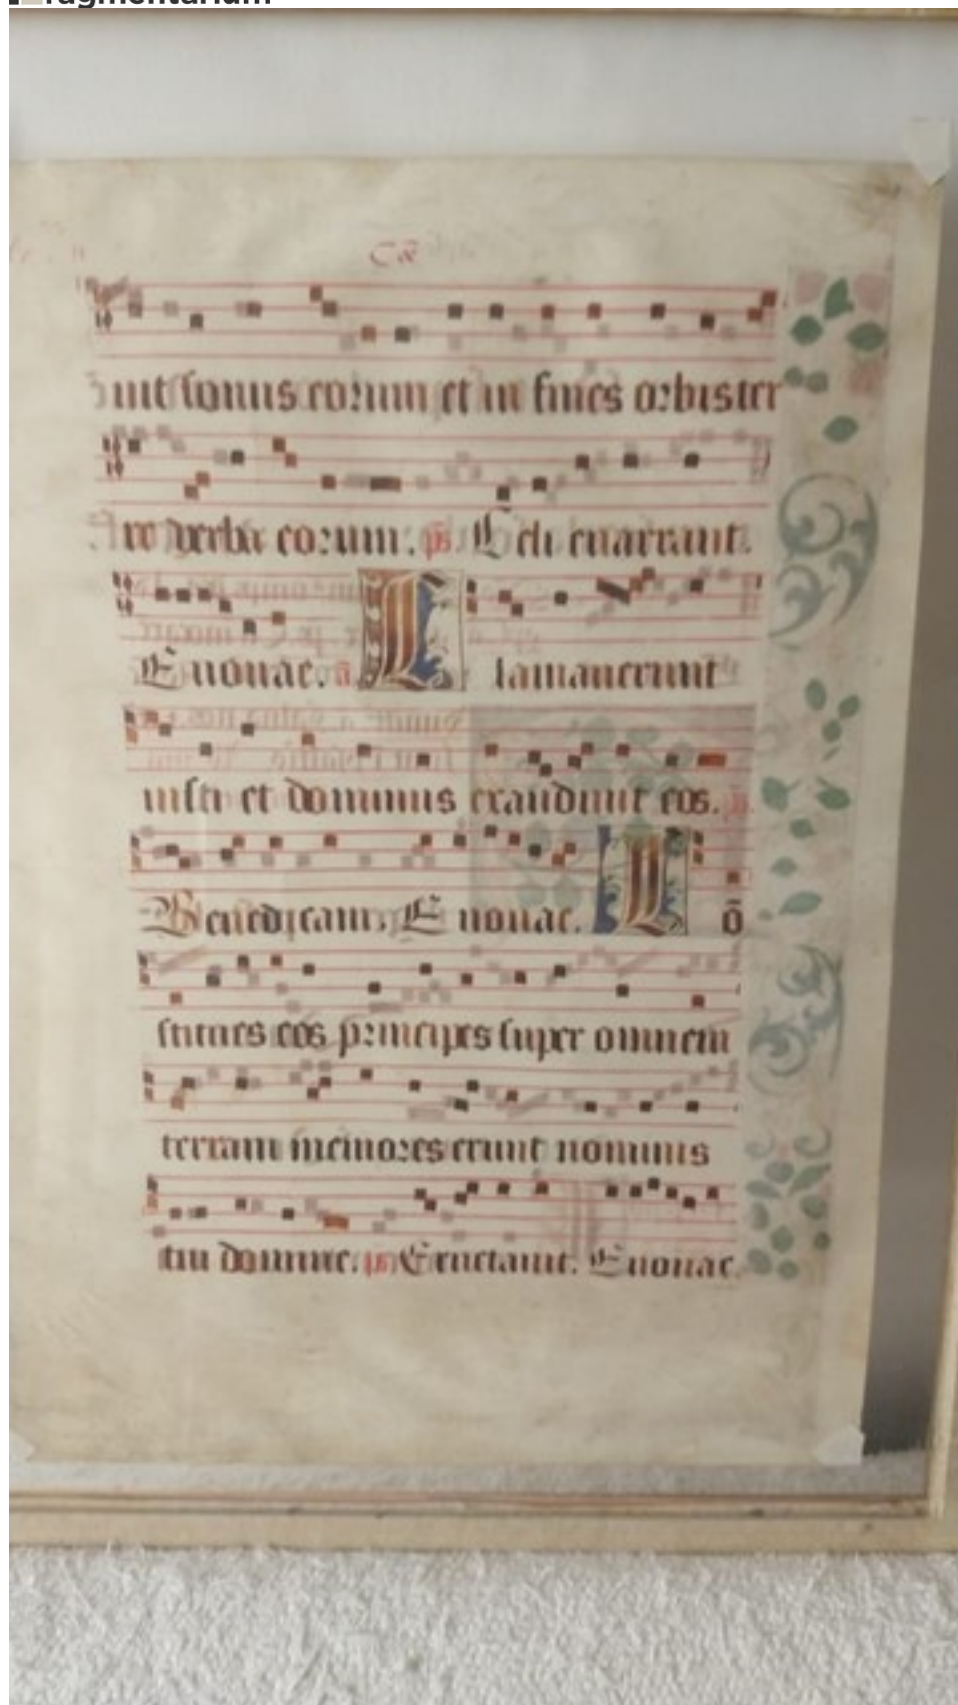 iuit sonus eorum et in fines orbis ter
re verba eorum. ps. Celi enarrant.
Euouae. a. Clamauerunt
iusti et dominus exaudiuit eos. ps
Benedicam. Euouae. Cō
stitues eos principes super omnem
terram memores erunt nominis
tui domine. ps. Eructauit. Euouae.